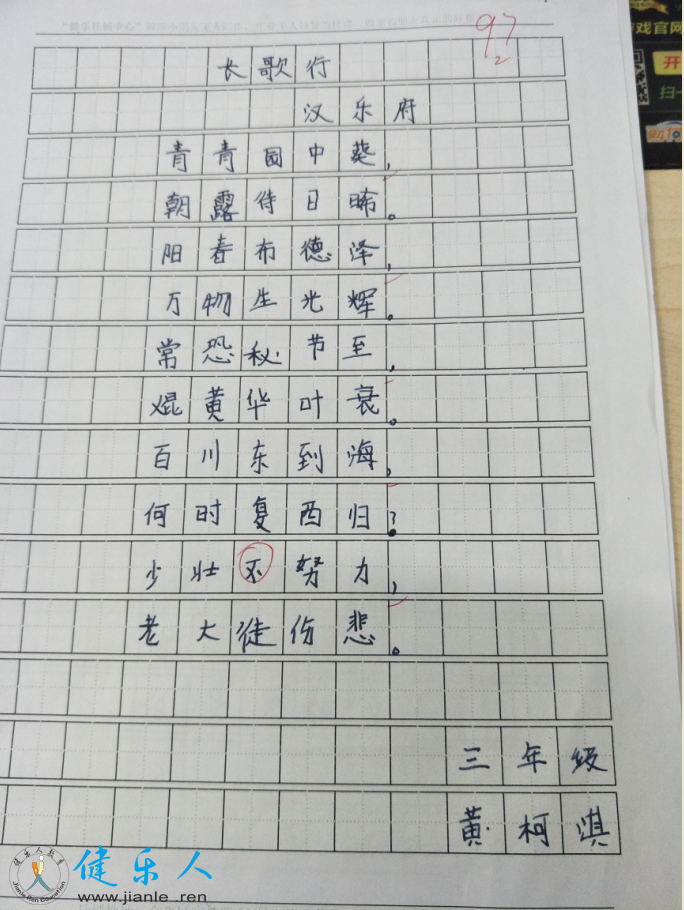 97
2
长歌行
汉乐府
青青园中葵,
朝露待日晞。
阳春布德泽,
万物生光辉。
常恐秘节至,
焜黄华叶衰。
百川东到海,
何时复西归?
少壮不努力,
老大徒伤悲。
三年级
黄柯淇
健乐人教育
Jianle Ren Education
健乐人
www.jianle .ren
戏官网
开
扫一